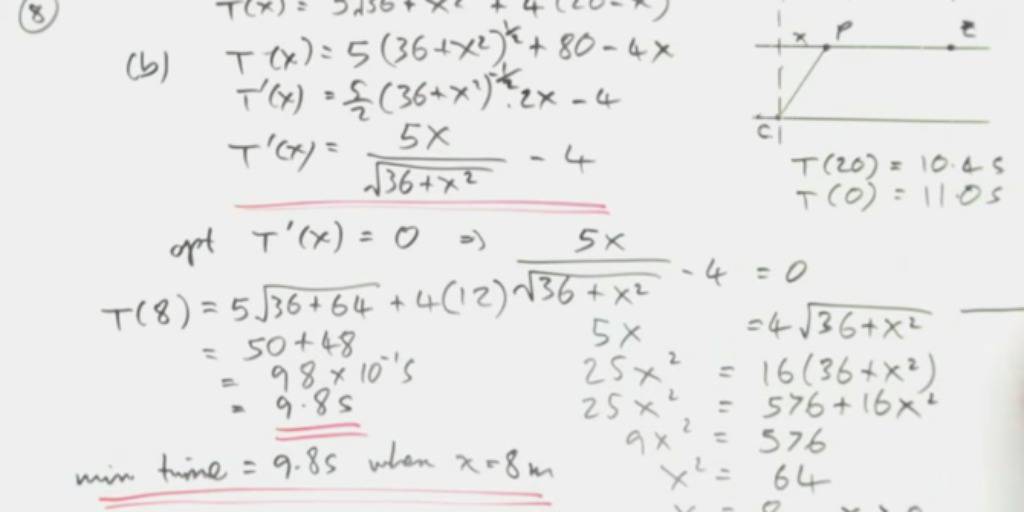 8
T(x) = 5√36+x² + 4(20-x)
(b) T(x) = 5(36+x²)^½ + 80 - 4x
T'(x) = 5/2 (36+x²)^-½ . 2x - 4
T'(x) = 5x / √36+x² - 4
opt T'(x) = 0 ⇒ 5x / √36+x² - 4 = 0
5x = 4√36+x²
25x² = 16(36+x²)
25x² = 576+16x²
9x² = 576
x² = 64
T(8) = 5√36+64 + 4(12)
= 50+48
= 98 × 10⁻¹s
= 9.8s
min time = 9.8s when x=8m
x P Z
C
T(20) = 10.4s
T(0) = 11.0s